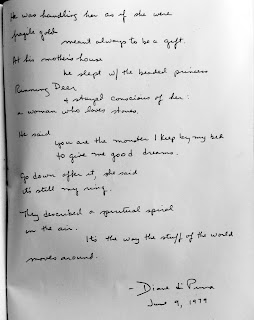 He was handling her as if she were
fragile gold
meant always to be a gift.
At his mother's house
he slept w/ the beaded princess
Running Deer
& stayed conscious of her:
a woman who loves stones.
He said
you are the monster I keep by my bed
to give me good dreams.
Go down after it, she said
its still my ring.
They described a spiritual spiral
in the air.
Its the way the stuff of the world
moves around.
- Diane di Prima
June 9, 1979